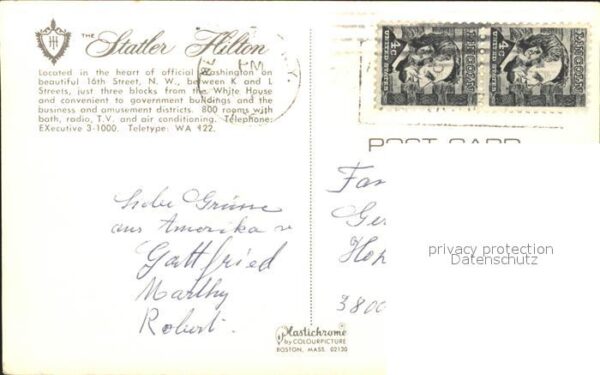 THE
Statler Hilton
Located in the heart of official Washington on
beautiful 16th Street, N. W., between K and L
Streets, just three blocks from the White House
and convenient to government buildings and the
business and amusement districts. 800 rooms with
bath, radio, T.V. and air conditioning. Telephone:
EXecutive 3-1000. Teletype: WA 422.
PM
4c
4c
POST CARD
Liebe Grüsse
aus Amerika
Gottfried
Marthy
Robert.
Fam
Ge
Hop
3800
privacy protection
Datenschutz
Plastichrome
by COLOURPICTURE
BOSTON, MASS. 02130